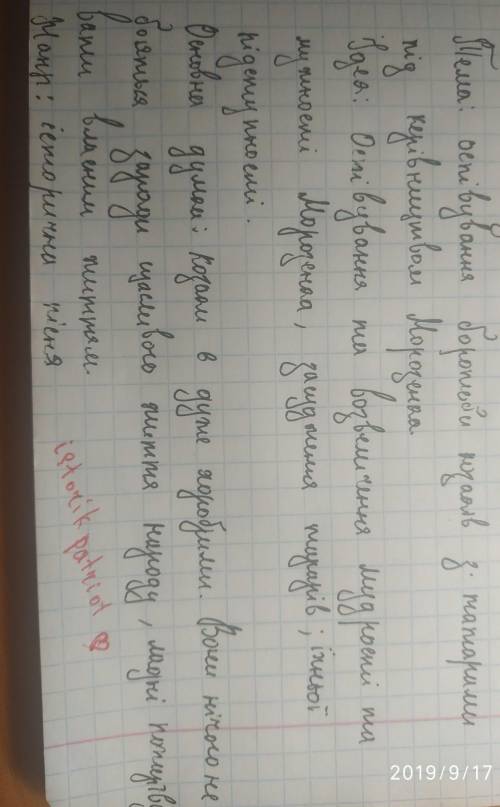 Тема: оспівування боротьби козаків з татарами
під керівництвом Морозенка
Ідея: Оспівування та возвеличення мудрості та
мужності Морозенка, засудження татарів; їхньої
підступності.
Основна думка: козаки в дуже хоробрими. Вони нічого не
бояться заради щасливого життя народу, ладні пожертв
вати власним життям.
Жанр: історична пісня
patriot
2019/9/17